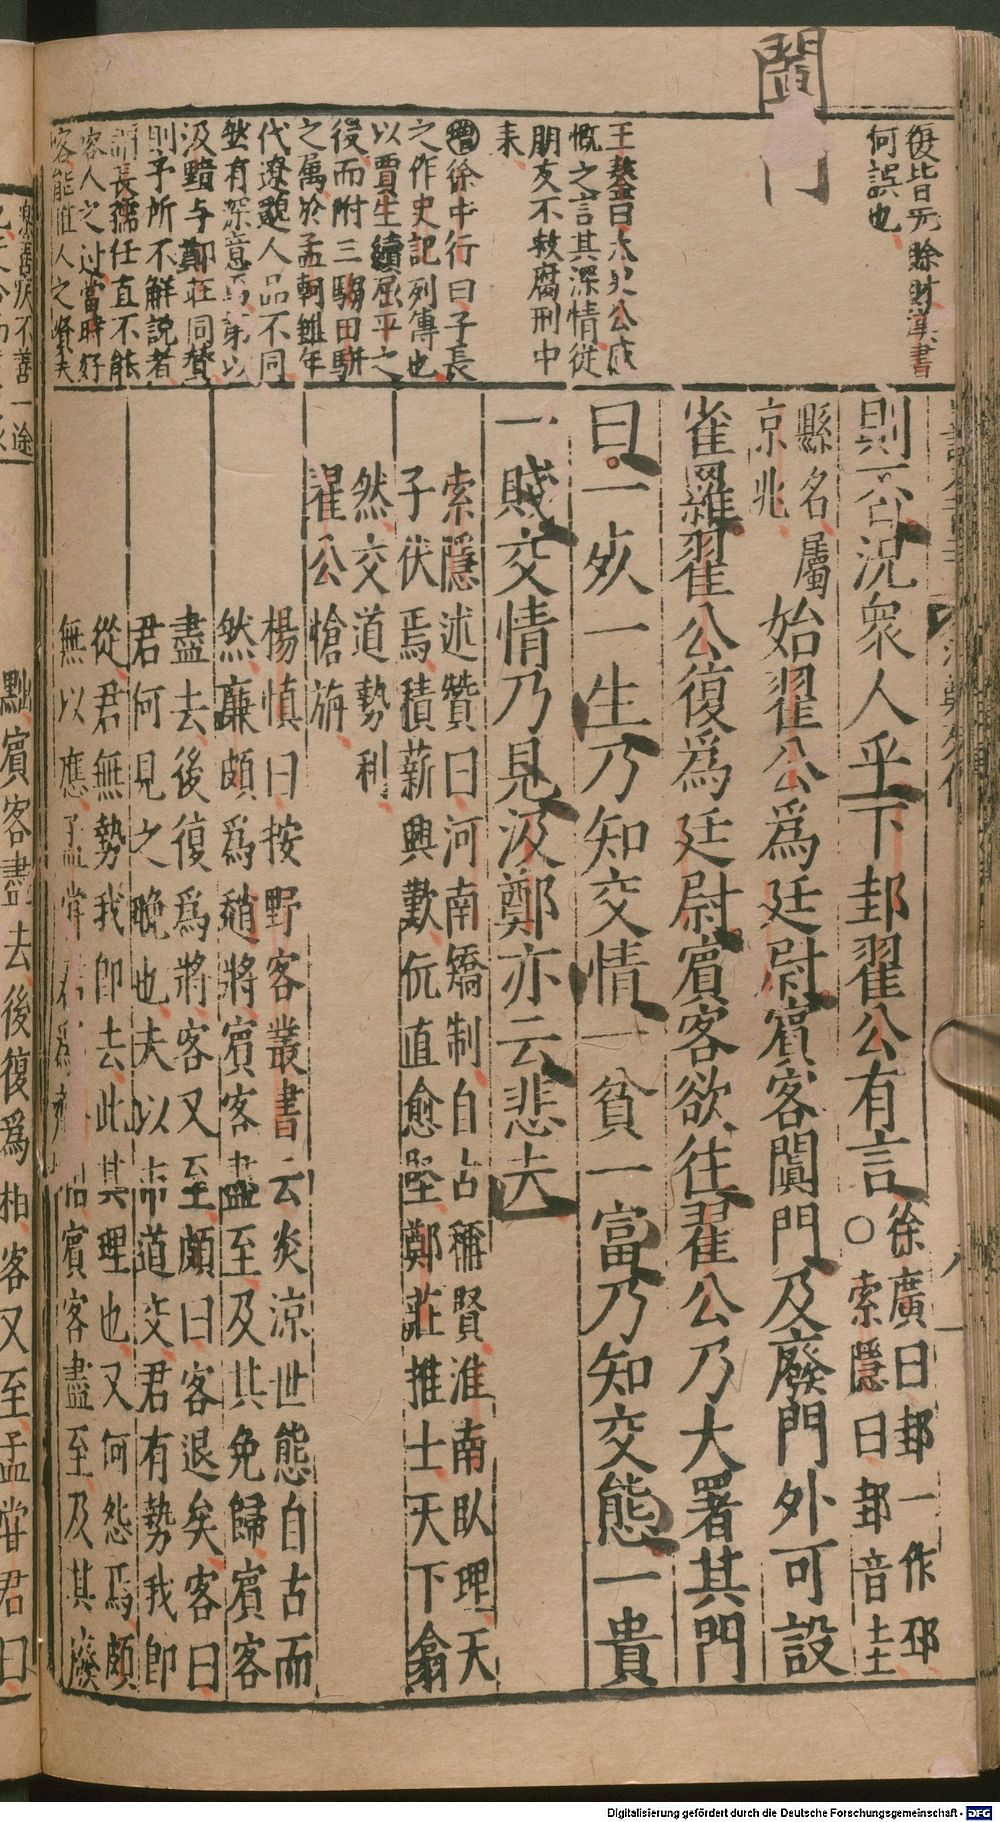 闐門
復皆无賒財漢書
何誤也
王鏊曰太史公感
慨之言其深情從
朋友不救腐刑中
来
增徐中行曰子長
之作史記列傳也
以賈生續屈平之
後而附三騶田駢
之属於孟軻雖年
代遼邈人品不同
然有深意焉第以
汲黯与鄭莊同賛
則予所不解説者
謂長孺任直不能
容人之过當時好
客能進人之賢
則否況衆人乎下邽翟公有言
徐廣曰邽一作邳
○索隱曰邽音圭
縣名屬
京兆
始翟公爲廷尉賓客闐門及廢門外可設
雀羅翟公復爲廷尉賓客欲往翟公乃大署其門
曰一死一生乃知交情一貧一富乃知交態一貴
一賤交情乃見汲鄭亦云悲夫
索隱述贊曰河南矯制自古稱賢淮南臥理天
子伏焉積薪興歎伉直愈堅鄭莊推士天下翕
然交道勢利
翟公愴旃
楊慎曰按野客叢書云炎涼世態自古而
然廉頗爲趙將賓客盡至及其免歸賓客
盡去後復爲將客又至頗曰客退矣客曰
君何見之晚也夫以市道交君有勢我即
從君無勢我即去此其理也又何怨焉頗
無以應孟嘗君爲齊相賓客盡至及其廢
黜賓客盡去後復爲相客又至孟嘗君曰
Digitalisierung gefördert durch die Deutsche Forschungsgemeinschaft - DFG